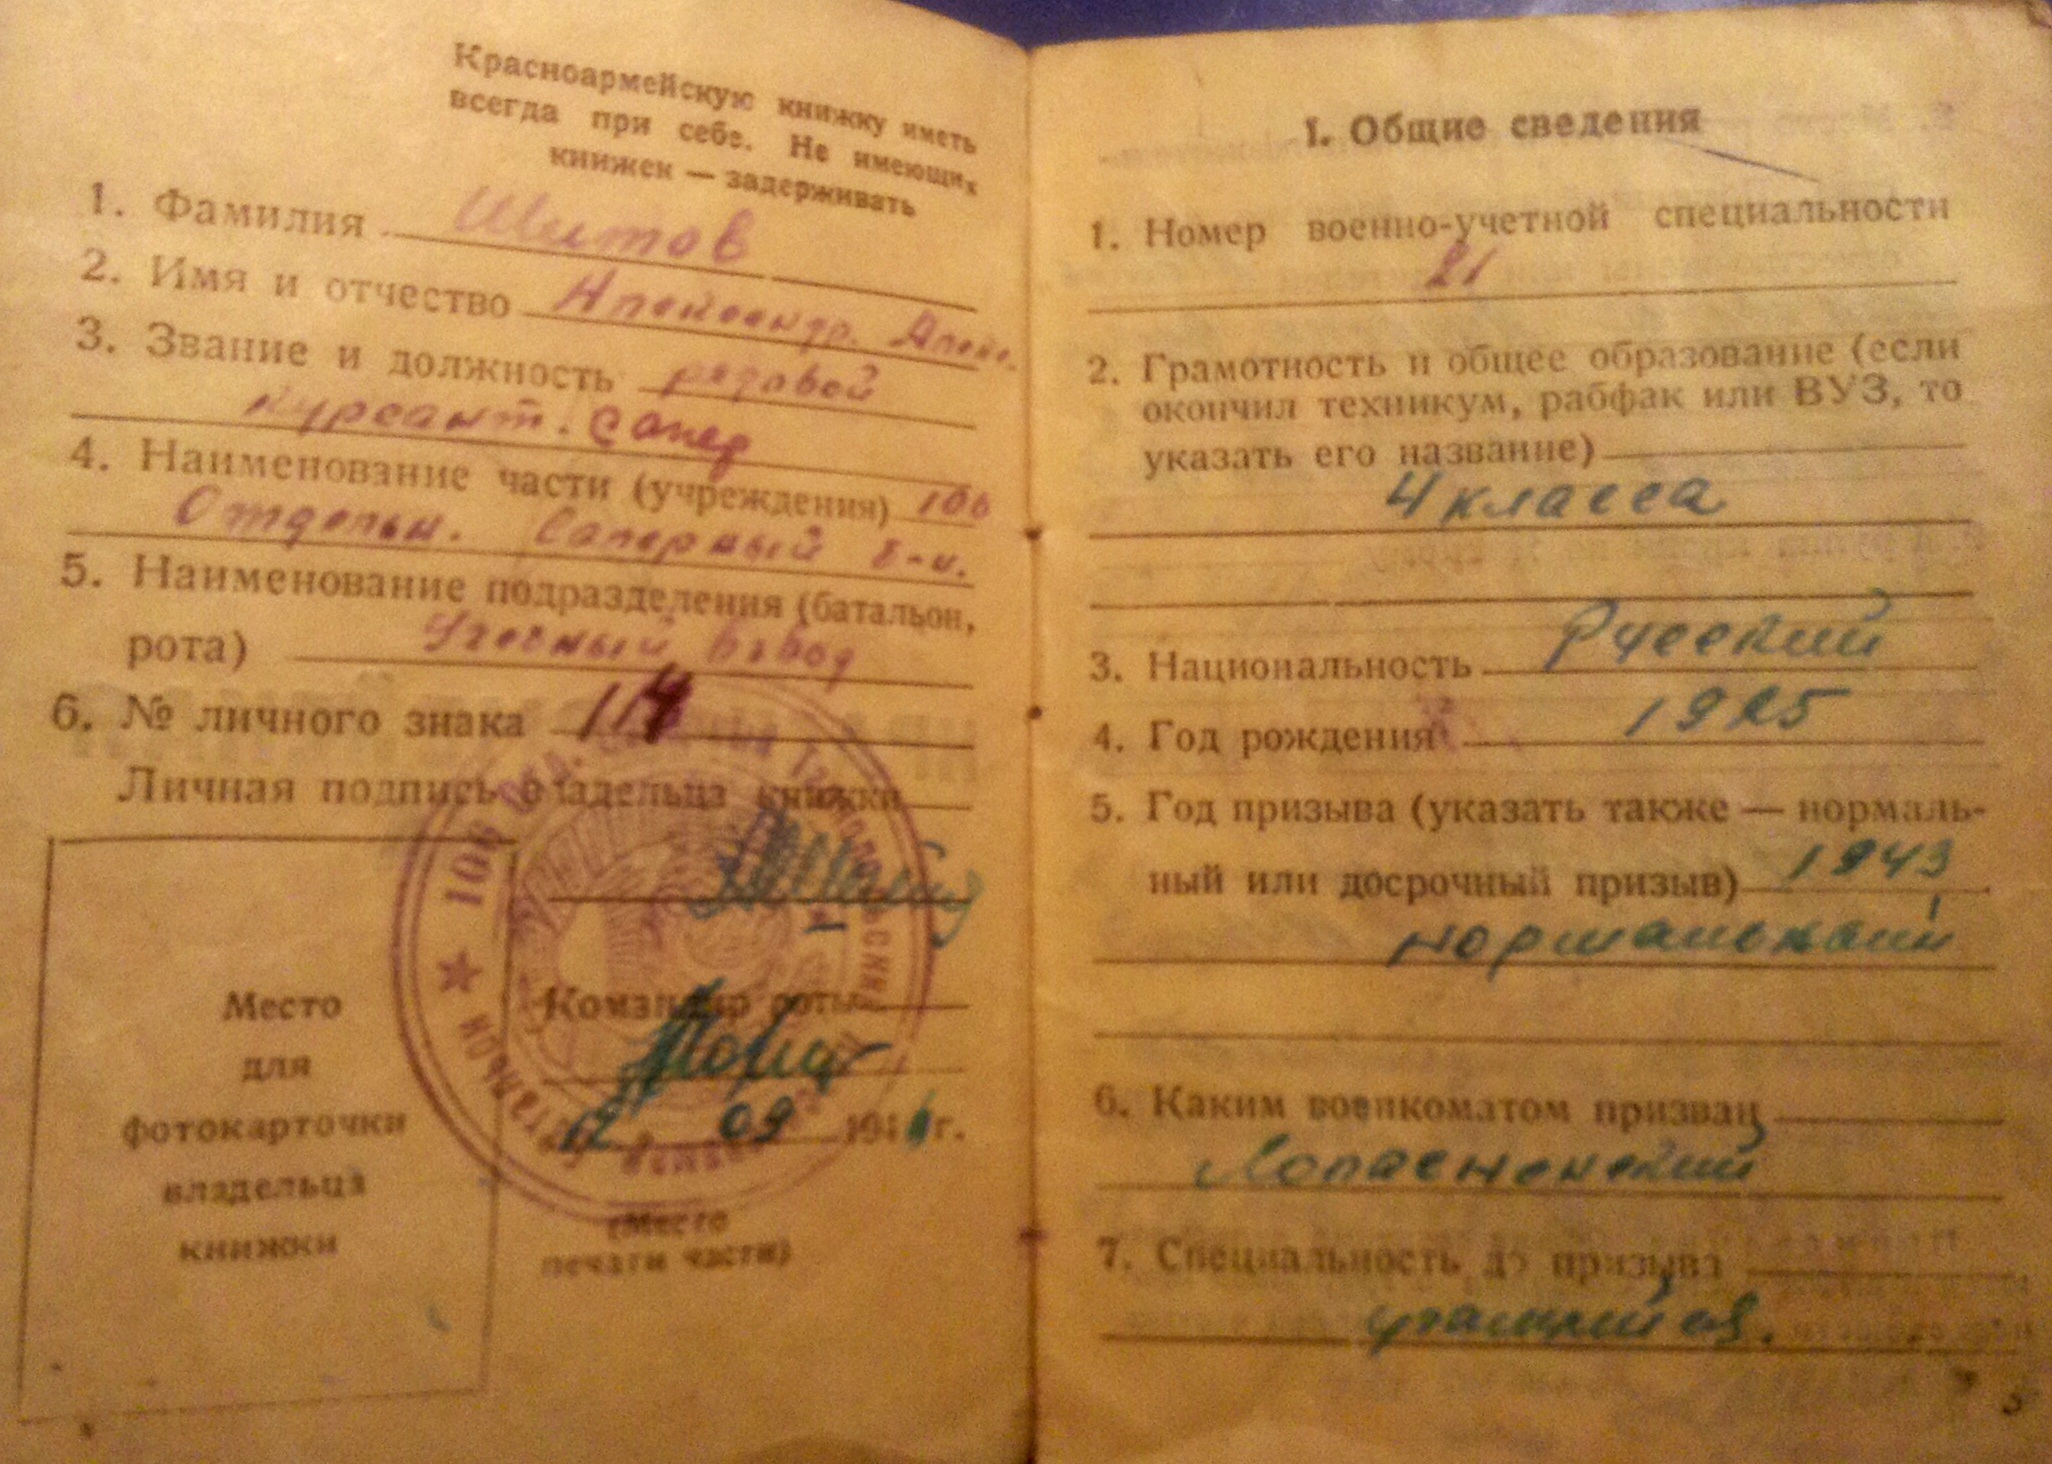 Красноармейскую книжку иметь
всегда при себе. Не имеющих
книжек — задерживать
1. Фамилия Шитов
2. Имя и отчество Александр. Алекс.
3. Звание и должность рядовой
курсант. сапер
4. Наименование части (учреждения) 106
Отдельн. Саперный б-н.
5. Наименование подразделения (батальон,
рота) Учебный взвод
6. № личного знака 114
Личная подпись владельца книжки
Командир роты
12 09 194 г.
(Место
печати части)
Место
для
фотокарточки
владельца
книжки
★ 106 отд. батальон
I. Общие сведения
1. Номер военно-учетной специальности
21
2. Грамотность и общее образование (если
окончил техникум, рабфак или ВУЗ, то
указать его название)
4 класса
3. Национальность Русский
4. Год рождения 1925
5. Год призыва (указать также — нормаль-
ный или досрочный призыв) 1943
нормальный
6. Каким военкоматом призван
Лопасненский
7. Специальность до призыва
учащийся.
3